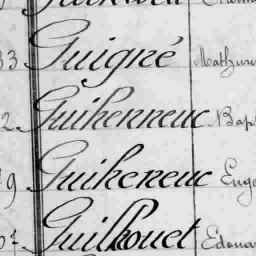 33 Guigné Mathuri
2 Guihenneuc Bap
9 Guiheneuc Eug
Guilhouet Edoua